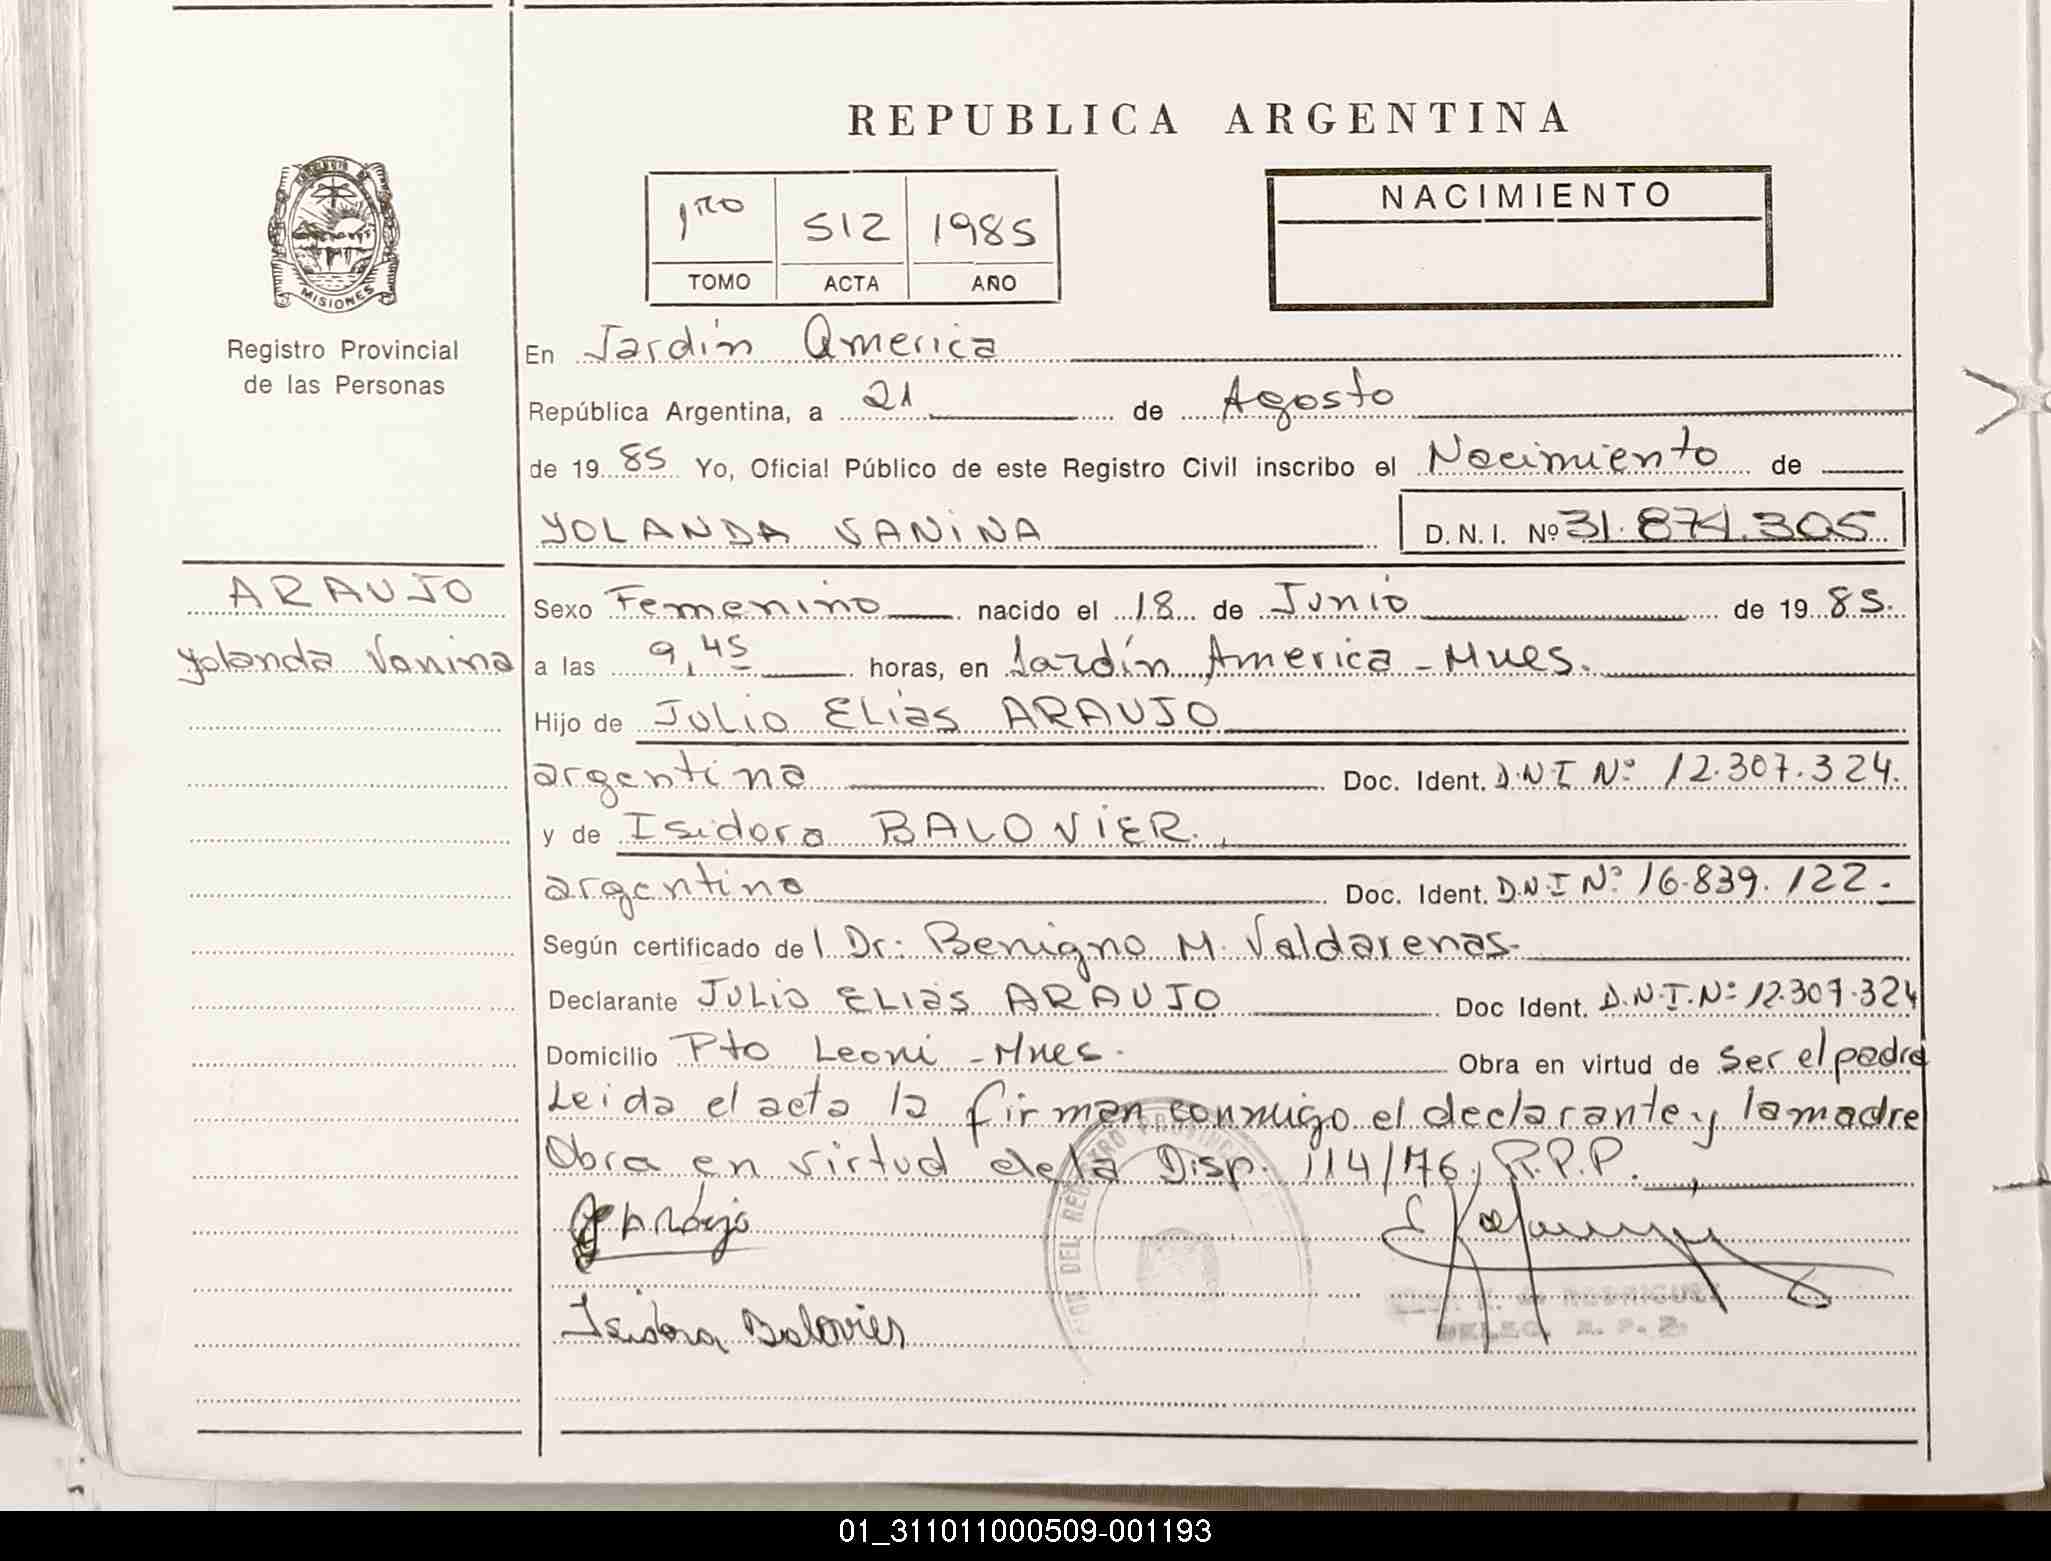 REPUBLICA ARGENTINA
MISIONES
Registro Provincial
de las Personas
1ro 512 1985
TOMO ACTA AÑO
NACIMIENTO
En Jardín America
República Argentina, a 21 de Agosto
de 1985 Yo, Oficial Público de este Registro Civil inscribo el Nacimiento de
YOLANDA VANINA D.N.I. Nº 31.874.305
ARAUJO
Yolanda Vanina
Sexo Femenino nacido el 18 de Junio de 1985.
a las 9,45 horas, en Jardín America - Mnes.
Hijo de JULIO ELIAS ARAUJO
argentina Doc. Ident. D.N.I Nº 12.307.324.
y de Isidora BALOVIER.,
argentina Doc. Ident. D.N.I Nº 16.839.122.
Según certificado del Dr: Benigno M. Valdarenas.
Declarante JULIO ELIAS ARAUJO Doc Ident. D.N.I.Nº 12.307.324
Domicilio Pto Leoni - Mnes. Obra en virtud de ser el padre
Leida el acta la firman conmigo el declarante y la madre
Obra en virtud de la Disp. 114/76, R.P.P.
Isidora Balovier
DEL REGISTRO PROVINCIAL
RODRIGUEZ
DELEG. R. P. P.
01_311011000509-001193